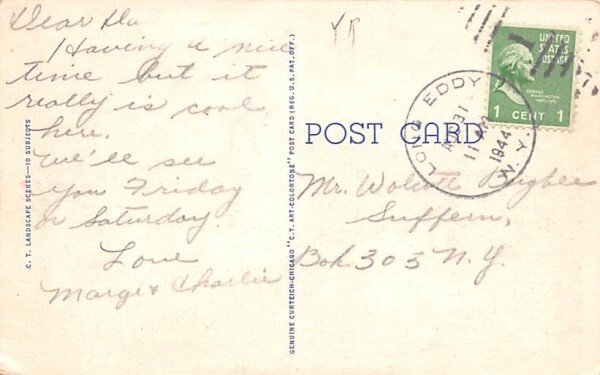 Dear
Having a nice
time but it
really is cool
here.
We'll see
you Friday
or Saturday.
Love
Marge & Charlie
C. T. LANDSCAPE SCENES—10 SUBJECTS
GENUINE CURTEICH-CHICAGO "C. T. ART-COLORTONE" POST CARD (REG. U. S. PAT. OFF.)
POST CARD
LONG EDDY
31
11 AM
1944
N. Y.
UNITED
STATES
POSTAGE
GEORGE
WASHINGTON
1 CENT 1
Mr. Bugbee
Suffern,
Box 303 N.Y.